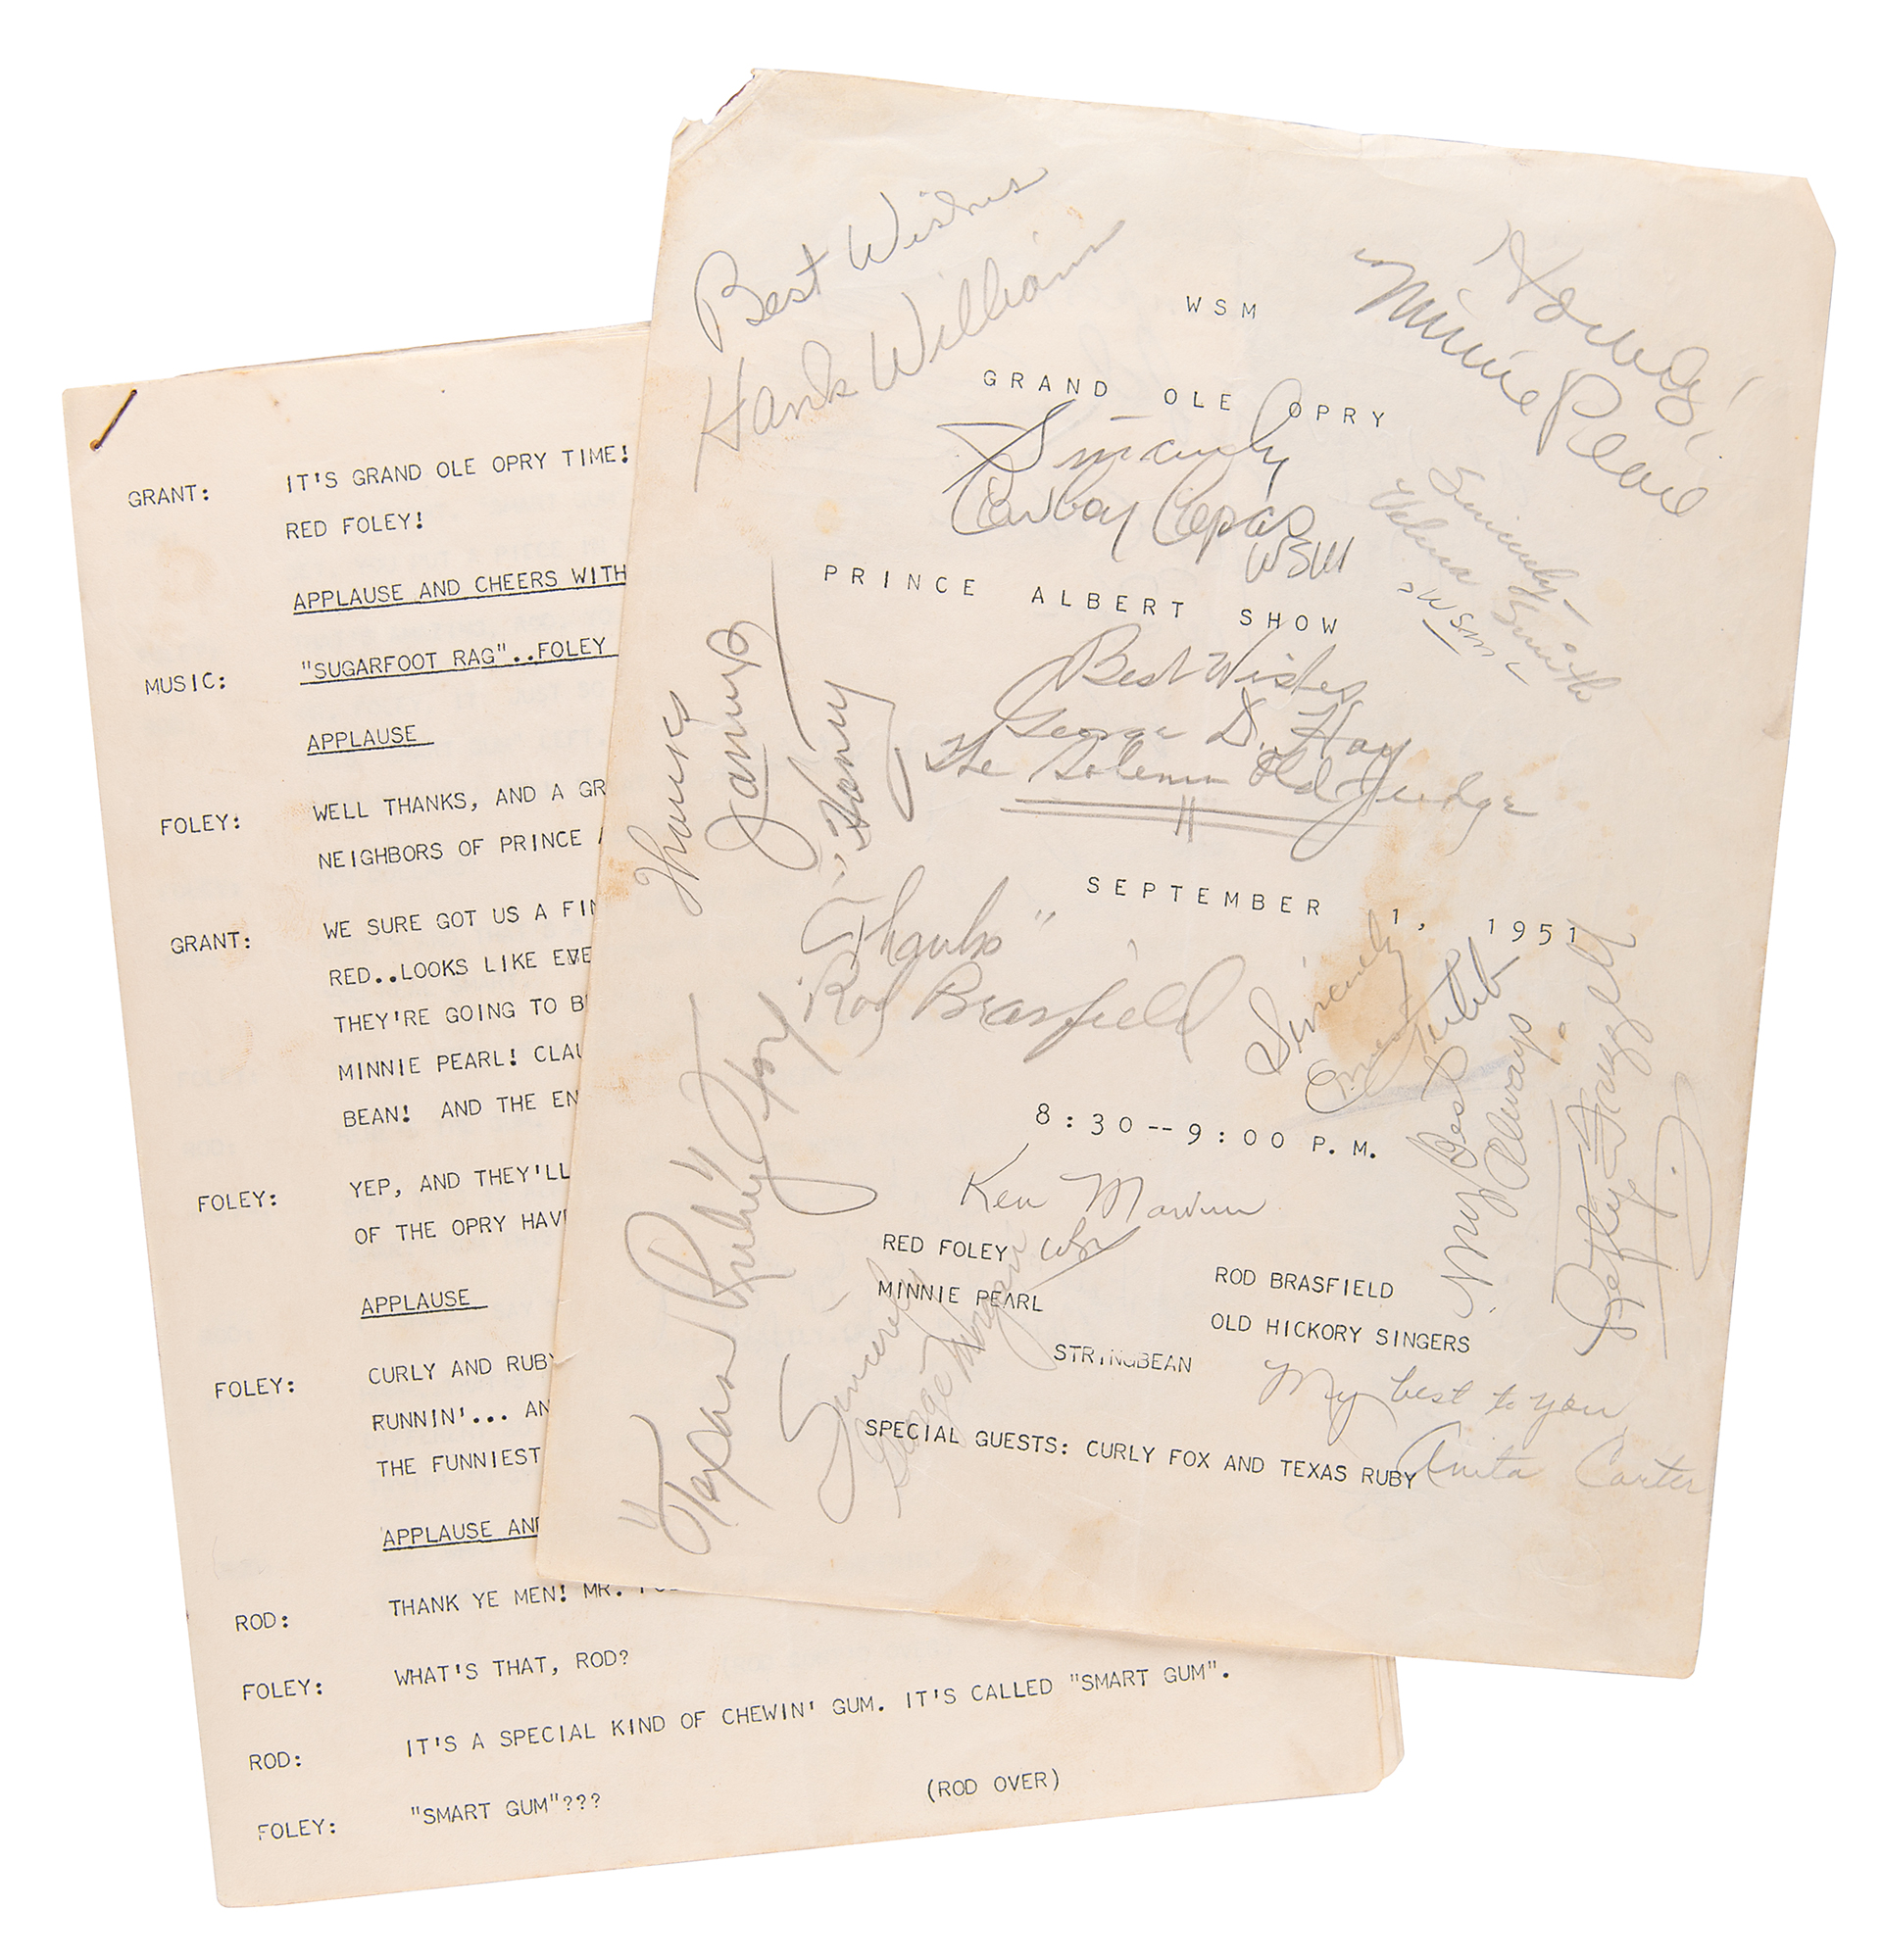 GRANT: IT'S GRAND OLE OPRY TIME!
RED FOLEY!
APPLAUSE AND CHEERS WITH
MUSIC: "SUGARFOOT RAG"..FOLEY
APPLAUSE
FOLEY: WELL THANKS, AND A GR
NEIGHBORS OF PRINCE A
GRANT: WE SURE GOT US A FIN
RED..LOOKS LIKE EVE
THEY'RE GOING TO B
MINNIE PEARL! CLAU
BEAN! AND THE EN
FOLEY: YEP, AND THEY'LL
OF THE OPRY HAV
APPLAUSE
FOLEY: CURLY AND RUBY
RUNNIN'... AN
THE FUNNIEST
APPLAUSE AND
ROD: THANK YE MEN! MR.
FOLEY: WHAT'S THAT, ROD?
ROD: IT'S A SPECIAL KIND OF CHEWIN' GUM. IT'S CALLED "SMART GUM".
FOLEY: "SMART GUM"???
(ROD OVER)
Best Wishes
Hank Williams
Howdy!
Minnie Pearl
WSM
GRAND OLE OPRY
Sincerely
Cowboy Copas
WSM
Sincerely
Velma Smith
WSM
PRINCE ALBERT SHOW
Best Wishes
George D. Hay
The Solemn Old Judge
Thanks
SEPTEMBER 1, 1951
"Thanks"
Rod Brasfield
Sincerely
Ernest Tubb
My Best
Always
Lefty Frizzell
8:30--9:00 P.M.
Ken Marvin
WSM
RED FOLEY
MINNIE PEARL
ROD BRASFIELD
OLD HICKORY SINGERS
STRINGBEAN
SPECIAL GUESTS: CURLY FOX AND TEXAS RUBY
Sincerely
George Morgan
My best to you
Anita Carter
"Texas Ruby"